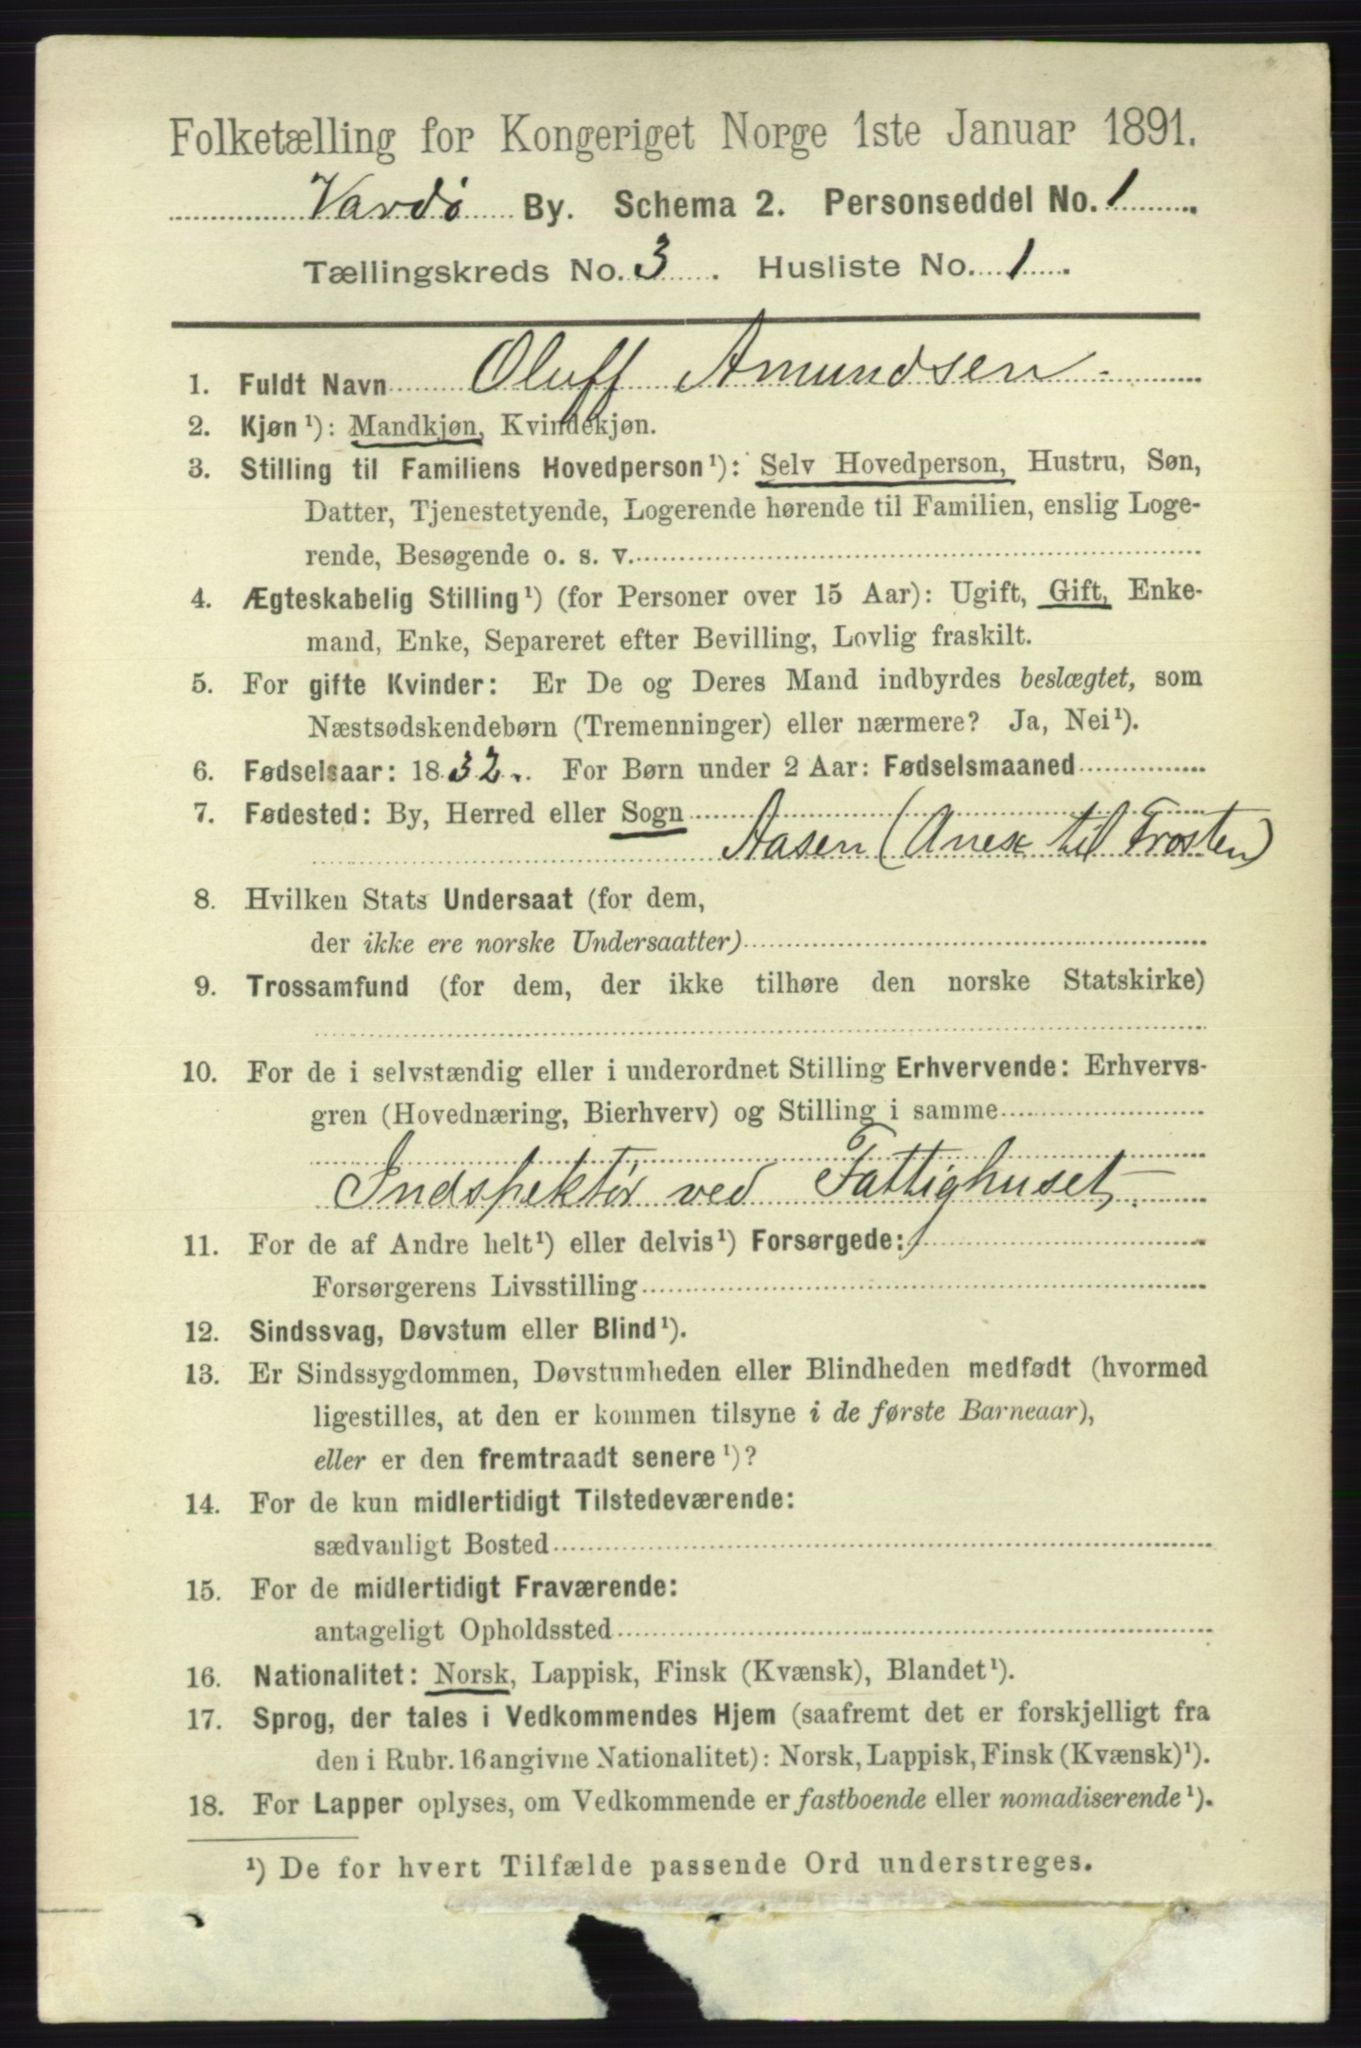 Folketælling for Kongeriget Norge 1ste Januar 1891.
Vardø By. Schema 2. Personseddel No. 1
Tællingskreds No. 3. Husliste No. 1.
1. Fuldt Navn Oluff Amundsen.
2. Kjøn ¹): Mandkjøn, Kvindekjøn.
3. Stilling til Familiens Hovedperson ¹): Selv Hovedperson, Hustru, Søn,
Datter, Tjenestetyende, Logerende hørende til Familien, enslig Loge-
rende, Besøgende o. s. v.
4. Ægteskabelig Stilling ¹) (for Personer over 15 Aar): Ugift, Gift, Enke-
mand, Enke, Separeret efter Bevilling, Lovlig fraskilt.
5. For gifte Kvinder: Er De og Deres Mand indbyrdes beslægtet, som
Næstsødskendebørn (Tremenninger) eller nærmere? Ja, Nei ¹).
6. Fødselsaar: 1832. For Børn under 2 Aar: Fødselsmaaned
7. Fødested: By, Herred eller Sogn
Aasen (Anex til Frosten)
8. Hvilken Stats Undersaat (for dem,
der ikke ere norske Undersaatter)
9. Trossamfund (for dem, der ikke tilhøre den norske Statskirke)
10. For de i selvstændig eller i underordnet Stilling Erhvervende: Erhvervs-
gren (Hovednæring, Bierhverv) og Stilling i samme
Indspektør ved Fattighuset.
11. For de af Andre helt ¹) eller delvis ¹) Forsørgede:
Forsørgerens Livsstilling
12. Sindssvag, Døvstum eller Blind ¹).
13. Er Sindssygdommen, Døvstumheden eller Blindheden medfødt (hvormed
ligestilles, at den er kommen tilsyne i de første Barneaar),
eller er den fremtraadt senere ¹)?
14. For de kun midlertidigt Tilstedeværende:
sædvanligt Bosted
15. For de midlertidigt Fraværende:
antageligt Opholdssted
16. Nationalitet: Norsk, Lappisk, Finsk (Kvænsk), Blandet ¹).
17. Sprog, der tales i Vedkommendes Hjem (saafremt det er forskjelligt fra
den i Rubr. 16 angivne Nationalitet): Norsk, Lappisk, Finsk (Kvænsk) ¹).
18. For Lapper oplyses, om Vedkommende er fastboende eller nomadiserende ¹).
¹) De for hvert Tilfælde passende Ord understreges.